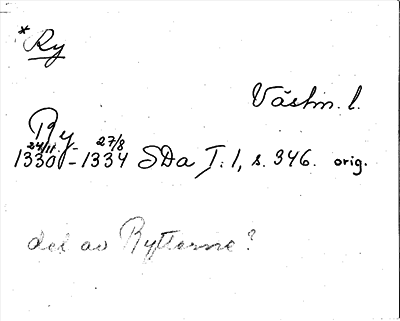 *Ry
Västm. l.
Ry
24/11 27/8
1330 - 1334 SDa I:1, s. 346. orig.
del av Ryttarne?